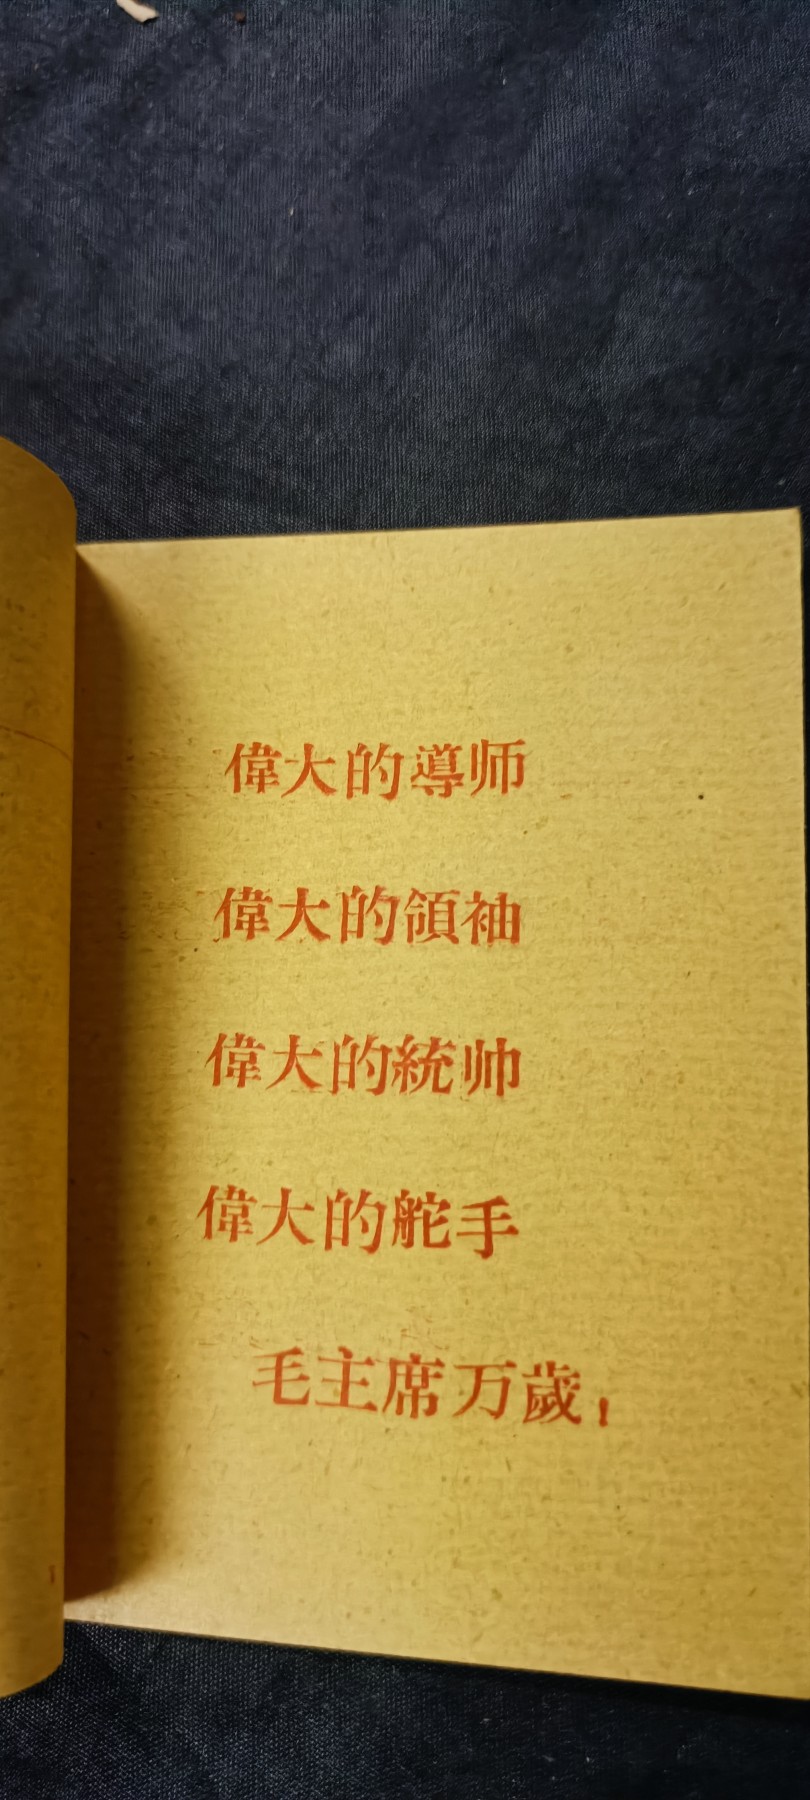 偉大的導师
偉大的領袖
偉大的統帅
偉大的舵手
毛主席万歲！